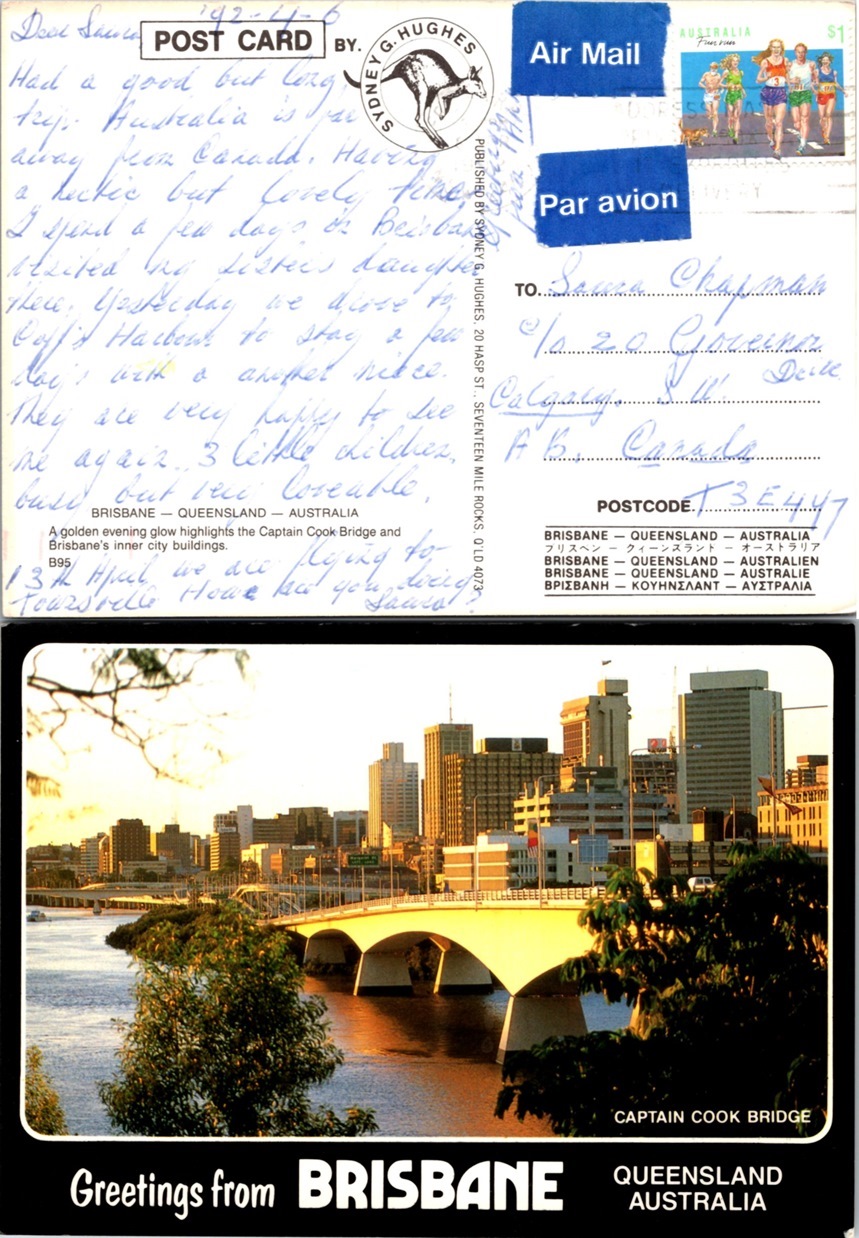 '92-4-6
Dear Laura
POST CARD BY.
SYDNEY G. HUGHES
Had a good but long
trip. Australia is far
away from Canada. Having
a hectic but lovely time
I spend a few days in Brisbane
visited my sister's daughter
there. Yesterday we drove to
Coff's Harbour to stay a few
days with a another niece.
They are very happy to see
me again. 3 little children,
busy but very loveable.
BRISBANE — QUEENSLAND — AUSTRALIA
A golden evening glow highlights the Captain Cook Bridge and
Brisbane's inner city buildings.
B95
13th April we are flying to
Townsville How are you doing?
PUBLISHED BY SYDNEY G. HUGHES, 20 HASP ST., SEVENTEEN MILE ROCKS, Q'LD 4073
Air Mail
Par avion
AUSTRALIA $1
Fun run
3
TO Laura Chapman
c/o 20 Governor
Drive
Calgary. S.W.
AB. Canada
POSTCODE T3E4Y7
BRISBANE — QUEENSLAND — AUSTRALIA
ブリスベン — クィーンスラント — オーストラリア
BRISBANE — QUEENSLAND — AUSTRALIEN
BRISBANE — QUEENSLAND — AUSTRALIE
ΒΡΙΣΒΑΝΗ — ΚΟΥΗΝΣΛΑΝΤ — ΑΥΣΤΡΑΛΙΑ
CAPTAIN COOK BRIDGE
Greetings from BRISBANE QUEENSLAND
AUSTRALIA